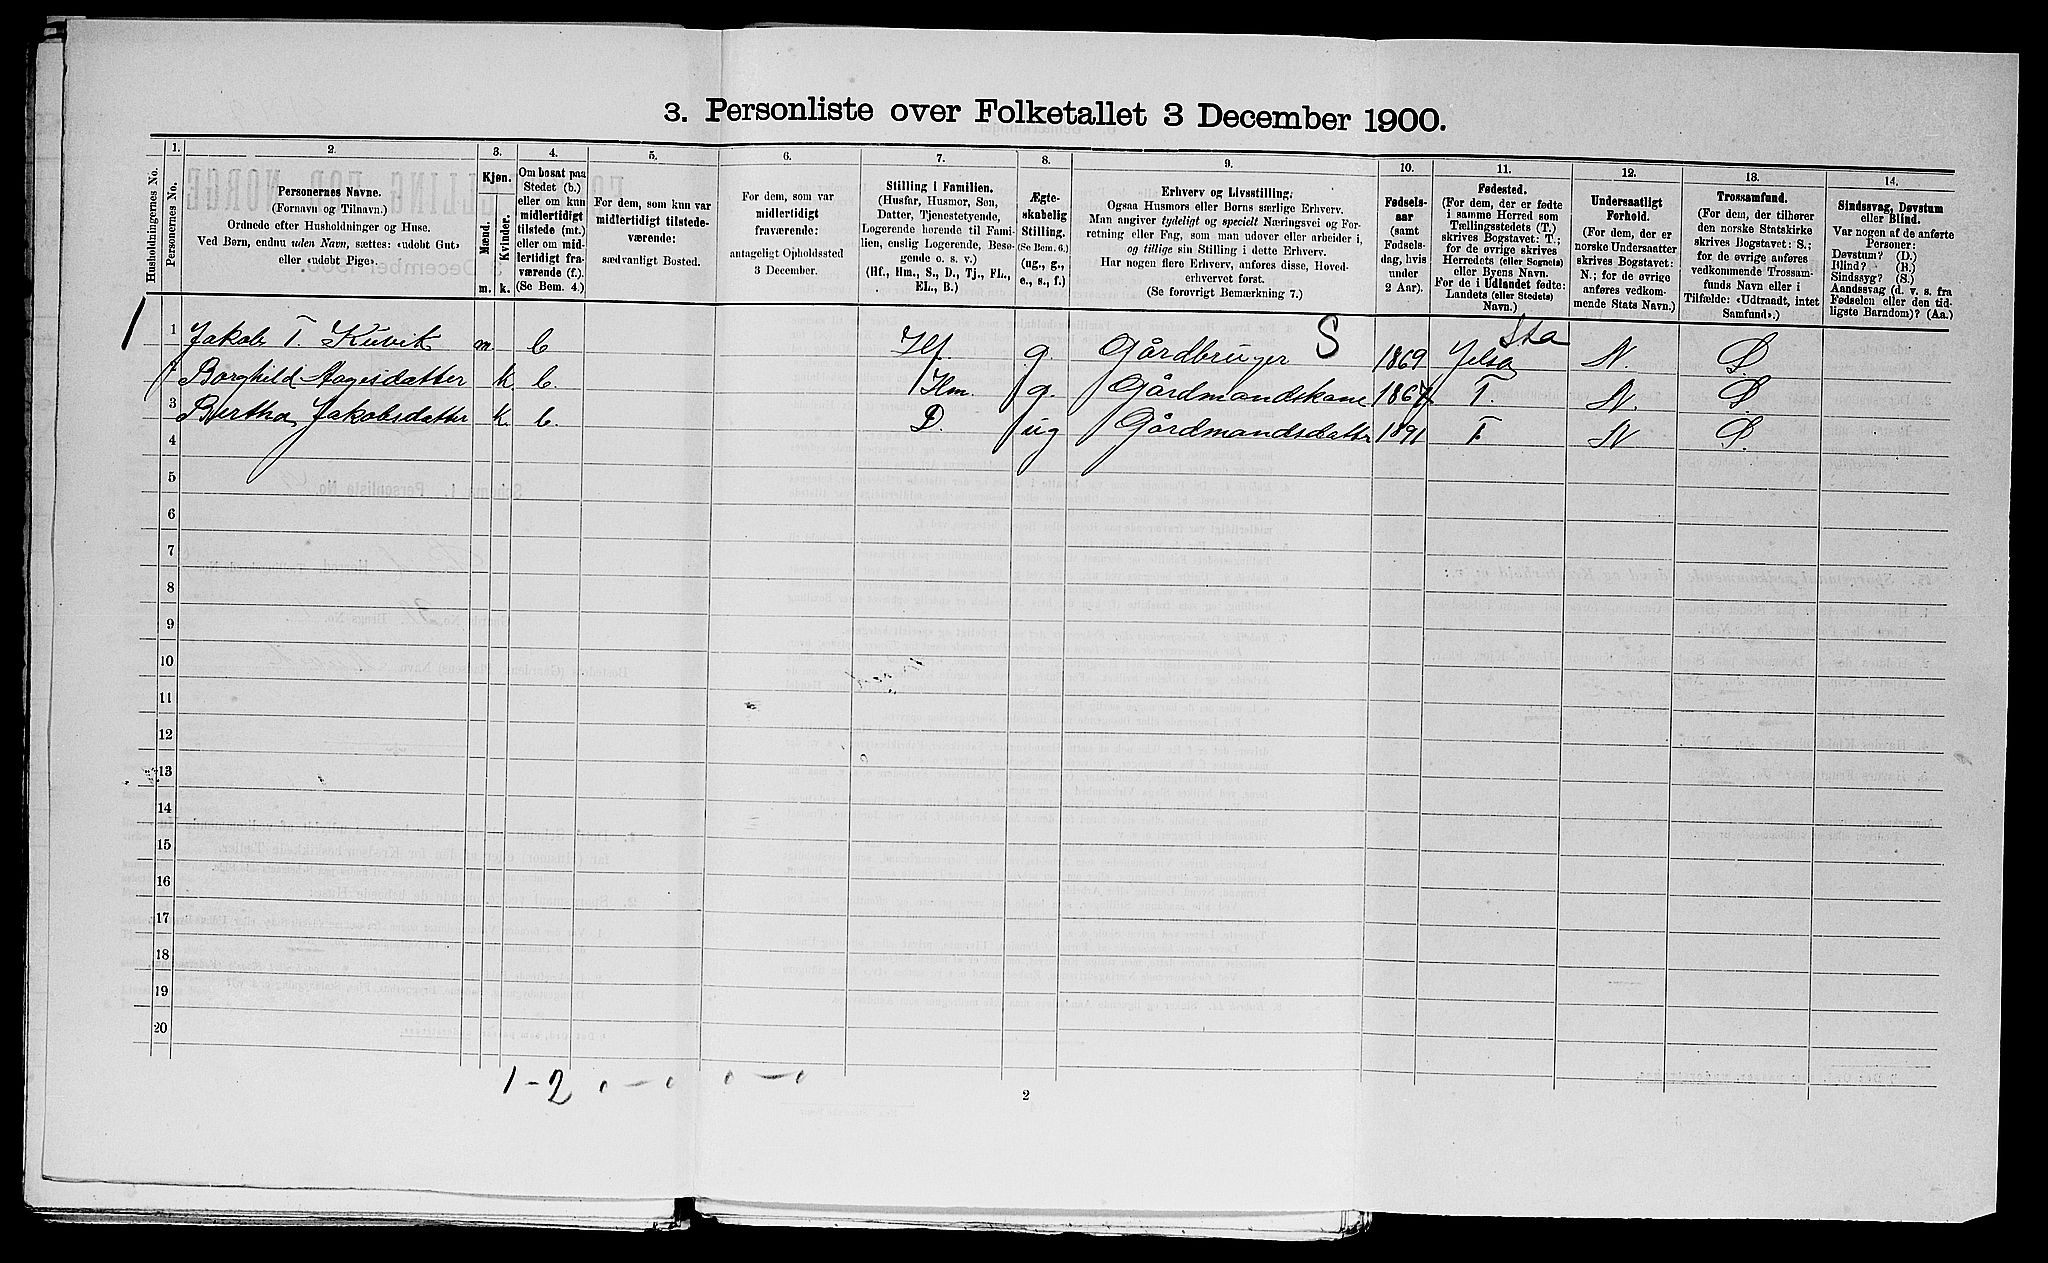 3. Personliste over Folketallet 3 December 1900.
Husholdningernes No.
1.
Personernes No.
2.
Personernes Navne.
(Fornavn og Tilnavn.)
Ordnede efter Husholdninger og Huse.
Ved Børn, endnu uden Navn, sættes: «udøbt Gut»
eller «udøbt Pige».
3.
Kjøn.
Mænd.
Kvinder.
m. k.
4.
Om bosat paa
Stedet (b.)
eller om kun
midlertidigt
tilstede (mt.)
eller om mid-
lertidigt fra-
værende (f.).
(Se Bem. 4.)
5.
For dem, som kun var
midlertidigt tilstede-
værende:
sædvanligt Bosted.
6.
For dem, som var
midlertidigt
fraværende:
antageligt Opholdssted
3 December.
7.
Stilling i Familien.
(Husfar, Husmor, Søn,
Datter, Tjenestetyende,
Logerende hørende til Fami-
lien, enslig Logerende, Besø-
gende o. s. v.)
(Hf., Hm., S., D., Tj., FL.,
EL., B.)
8.
Ægte-
skabelig
Stilling.
(Se Bem. 6.)
(ug., g.,
e., s., f.)
9.
Erhverv og Livsstilling.
Ogsaa Husmors eller Børns særlige Erhverv.
Man angiver tydeligt og specielt Næringsvei og For-
retning eller Fag, som man udøver eller arbeider i,
og tillige sin Stilling i dette Erhverv.
Har nogen flere Erhverv, anføres disse, Hoved-
erhvervet først.
(Se forøvrigt Bemærkning 7.)
10.
Fødsels-
aar
(samt
Fødsels-
dag, hvis
under
2 Aar).
11.
Fødested.
(For dem, der er fødte
i samme Herred som
Tællingsstedets (T.)
skrives Bogstavet: T.;
for de øvrige skrives
Herredets (eller Sognets)
eller Byens Navn.
For de i Udlandet fødte:
Landets (eller Stedets)
Navn.)
12.
Undersaatligt
Forhold.
(For dem, der er
norske Undersaatter
skrives Bogstavet:
N.; for de øvrige
anføres vedkom-
mende Stats Navn.)
13.
Trossamfund.
(For dem, der tilhører
den norske Statskirke
skrives Bogstavet: S.;
for de øvrige anføres
vedkommende Trossam-
funds Navn eller i
Tilfælde: «Udtraadt, intet
Samfund».)
14.
Sindssvag, Døvstum
eller Blind.
Var nogen af de anførte
Personer:
Døvstum? (D.)
Blind? (B.)
Sindssyg? (S.)
Aandssvag (d. v. s. fra
Fødselen eller den tid-
ligste Barndom)? (Aa.)
1 1 Jakob T. Kuvik m. b Hf. g. Gårdbruger S 1869 Jelsa Sta N. S
Borghild Aagesdatter k b. Hm. g. Gårdmandskone T. N. S
3 Bertha Jakobsdatter k b. D. ug Gårdmandsdatter 1891 T. N S.
4
5
6
7
8
9
10
11
12
13
14
15
16
17
18
19
20
1-2 0-0 0-0
2